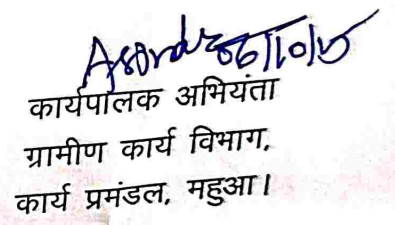 06/10/25
कार्यपालक अभियंता
ग्रामीण कार्य विभाग,
कार्य प्रमंडल, महुआ।